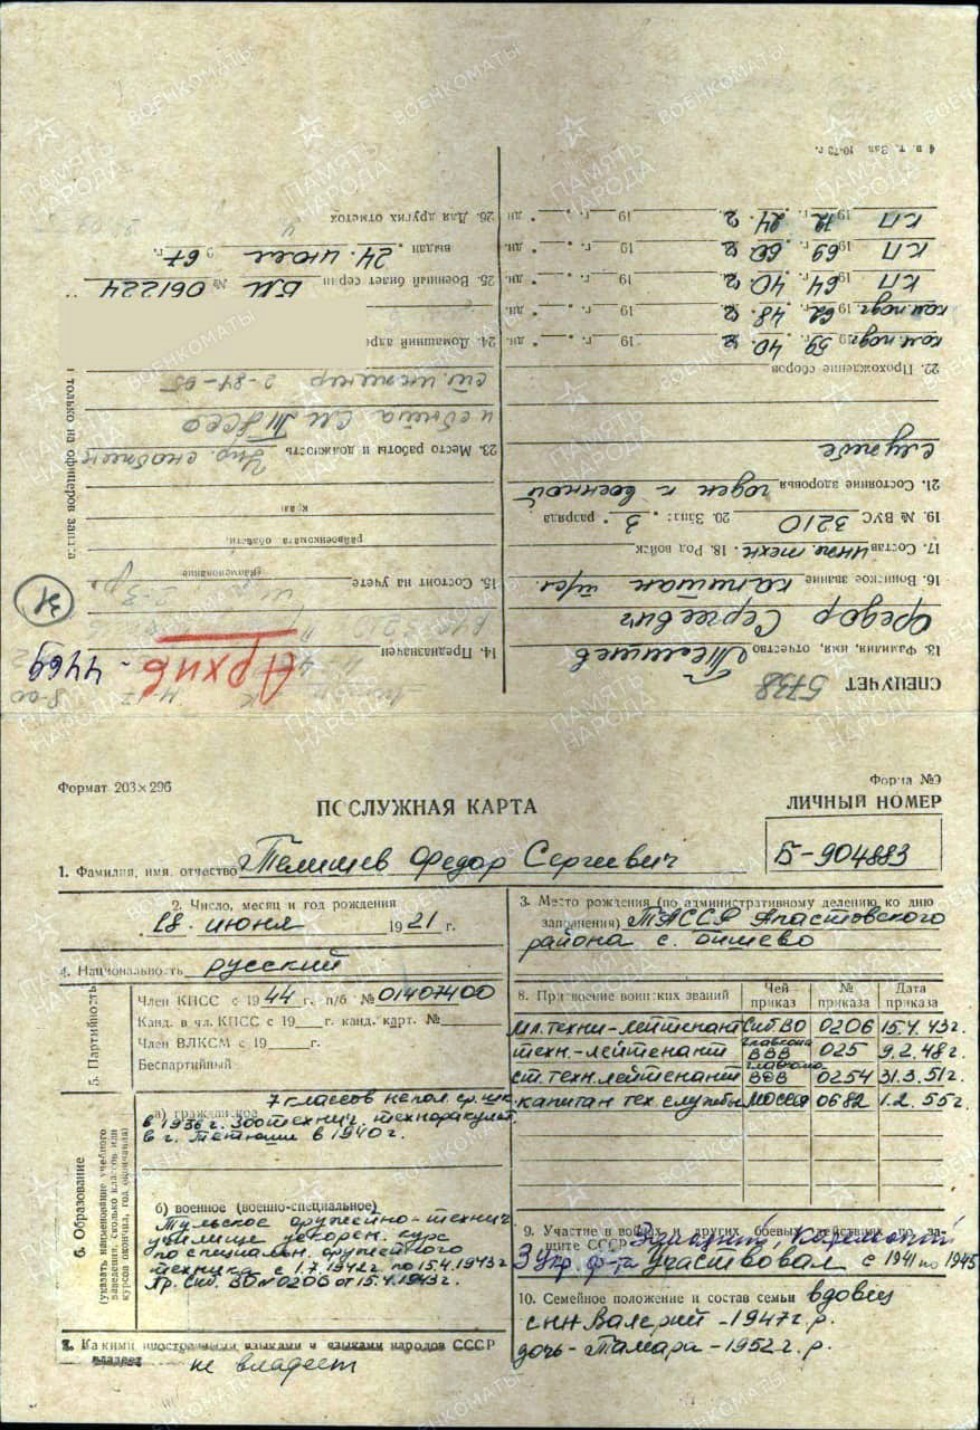 Формат 203×296
Форма №9
ПОСЛУЖНАЯ КАРТА
ЛИЧНЫЙ НОМЕР
Б-904883
1. Фамилия, имя, отчество Телишев Федор Сергеевич
2. Число, месяц и год рождения
18. июня 1921 г.
3. Место рождения (по административному делению ко дню
заполнения) ТАССР Апастовского
района с. Бишево
4. Национальность русский
5. Партийность
Член КПСС с 1944 г. п/б № 01407400
Канд. в чл. КПСС с 19 г. канд. карт. №
Член ВЛКСМ с 19 г.
Беспартийный
6. Образование
(указать наименование учебного
заведения, сколько классов или
курсов окончил, год окончания)
7 классов непол. ср. шк.
а) гражданское
в 1936 г. Зоотехнич.
в г. Тетюши в 1940 г.
б) военное (военно-специальное)
Тульское оружейно-технич
училище ускорен. курс
по специальн. оружейного
техника с 1.7.1942 г. по 15.4.1943 г
Пр. Сиб. ВО №0206 от 15.4.1943 г.
7. Какими иностранными языками и языками народов СССР
владеет не владеет
8. Присвоение воинских званий
Чей приказ
№ приказа
Дата приказа
мл. техни-лейтенант СибВО 0206 15.4.43 г.
техн.-лейтенант 025 9.2.48 г.
ст. техн. лейтенант 0254 31.3.51 г.
капитан тех службы 0682 1.2.55 г.
9. Участие в войнах и других боевых действиях по за-
щите СССР Западный,
3 Укр. ф-та участвовал с 1941 по 1945
10. Семейное положение и состав семьи вдовец
сын Валерий - 1947 г. р.
дочь - Тамара - 1952 г. р.
СПЕЦУЧЕТ 5738
13. Фамилия, имя, отчество Телишев
Федор Сергеевич
16. Воинское звание капитан
17. Состав инж. техн. 18. Род войск
19. № ВУС 3210 20. Запас: „3“ разряда
21. Состояние здоровья годен к военной
службе
22. Прохождение сборов
ком. подг. 1959 г. 40
ком. подг. 1962 г. 48
КП 1964 г. 40
КП 1969 г. 60
КП 1972 г. 24
4 в. т. Зак 10-73 г.
Архив
4469
31
14. Предназначен
15. Состоит на учете
(наименование
райвоенкомата области,
края)
23. Место работы и должность Упр. снабжен
и сбыта СМ ТАССР
ст. инженер 2-84-65
24. Домашний адрес
25. Военный билет серии БИ № 061224
выдан „24“ июля 1967 г.
26. Для других отметок
только на офицеров запаса
ПАМЯТЬ НАРОДА
ВОЕНКОМАТЫ